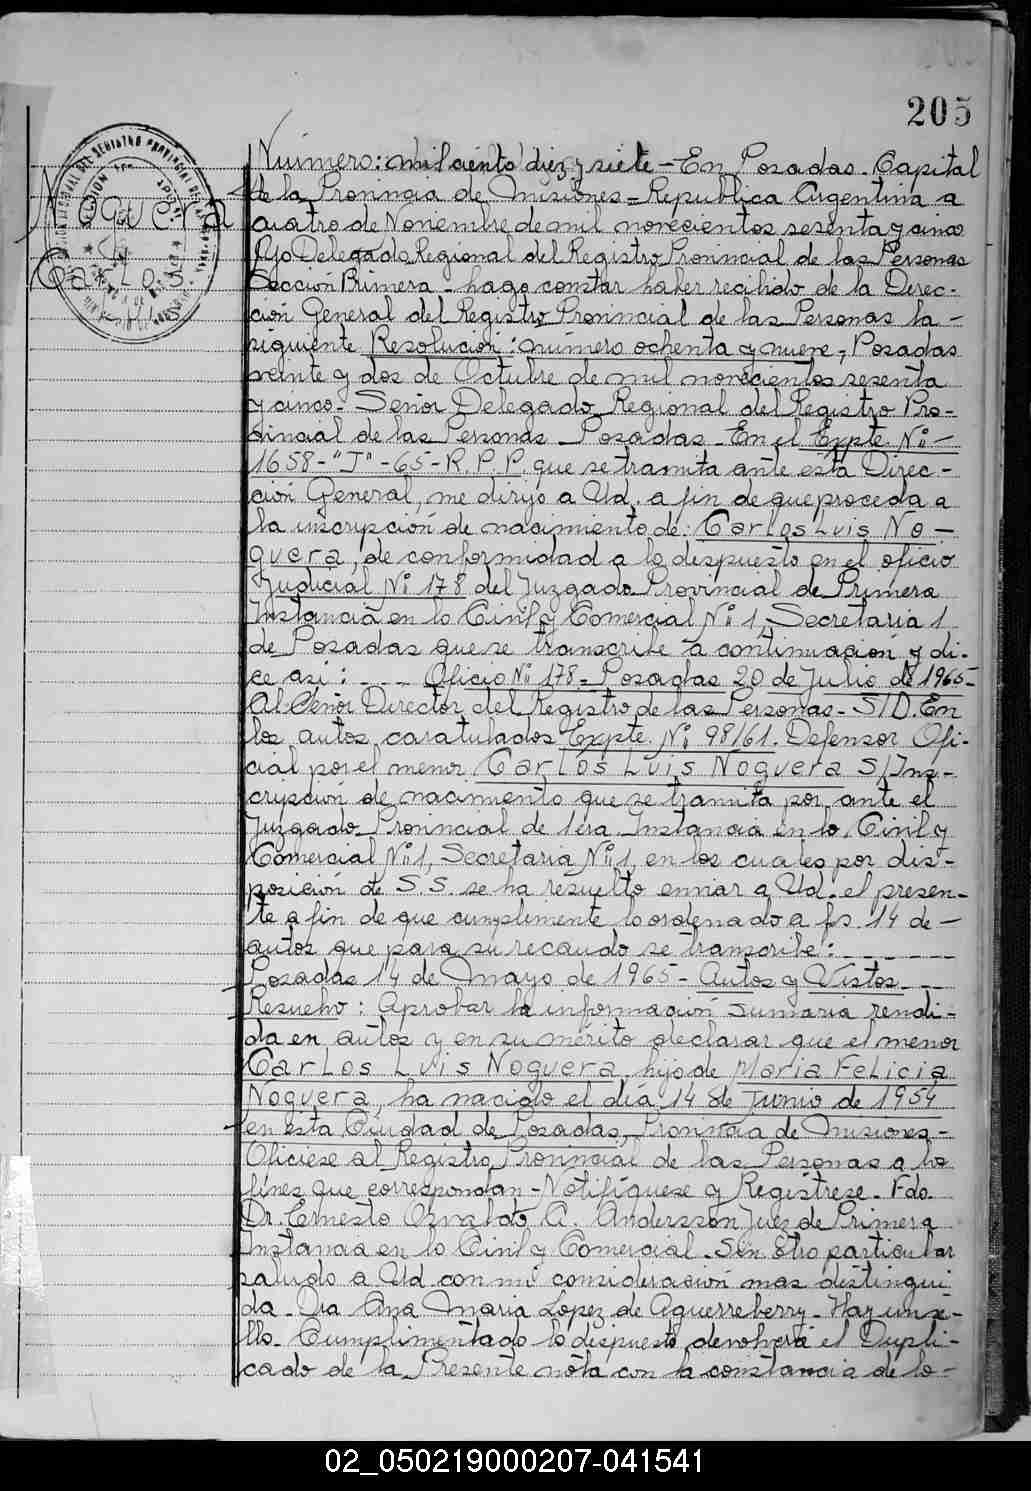 205
Noguera
Carlos
Número: mil ciento diez y siete - En Posadas. Capital
de la Provincia de Misiones = Republica Argentina a
cuatro de Noviembre de mil novecientos sesenta y cinco
Yo Delegado Regional del Registro Provincial de las Personas
Sección Primera - hago constar haber recibido de la Direc-
ción General del Registro Provincial de las Personas la -
siguiente Resolución: número ochenta y nueve, Posadas
veinte y dos de Octubre de mil novecientos sesenta
y cinco - Señor Delegado Regional del Registro Pro-
vincial de las Personas - Posadas - En el Expte. Nº -
1658-"J"-65-R.P.P. que se tramita ante esta Direc-
ción General, me dirijo a Ud. a fin de que proceda a
la inscripción de nacimiento de: Carlos Luis No-
guera, de conformidad a lo dispuesto en el oficio
Judicial Nº 178 del Juzgado Provincial de Primera
Instancia en lo Civil y Comercial Nº 1, Secretaria 1
de Posadas que se transcribe a continuación y di-
ce así: - - - Oficio Nº 178 = Posadas 20 de Julio de 1965-
Al Señor Director del Registro de las Personas - S/D. En
los autos caratulados Expte. Nº 98/61. Defensor Ofi-
cial por el menor Carlos Luis Noguera S/Ins-
cripción de nacimiento que se tramita por ante el
Juzgado Provincial de 1éra Instancia en lo Civil y
Comercial Nº 1, Secretaria Nº 1, en los cuales por dis-
posición de S.S. se ha resuelto enviar a Ud. el presen-
te a fin de que cumplimente lo ordenado a fs. 14 de -
autos que para su recaudo se transcribe: - - - - - -
Posadas 14 de Mayo de 1965 - Autos y Vistos - -
Resuelvo: Aprobar la información sumaria rendi-
da en autos y en su mérito declarar que el menor
Carlos Luis Noguera, hijo de Maria Felicia
Noguera, ha nacido el día 14 de Junio de 1954
en esta Ciudad de Posadas, Provincia de Misiones -
Oficiese al Registro Provincial de las Personas a los
fines que correspondan - Notifíquese y Registrese - Fdo.
Dr. Ernesto Osvaldo A. Andersson Juez de Primera
Instancia en lo Civil y Comercial - Sin otro particular
saludo a Ud. con mi consideración mas distingui
da - Dra Ana Maria López de Aguerreberry - Hay un se-
llo - Cumplimentado lo dispuesto, devolverá el Dupli-
cado de la Presente nota con la constancia de lo -
02_050219000207-041541